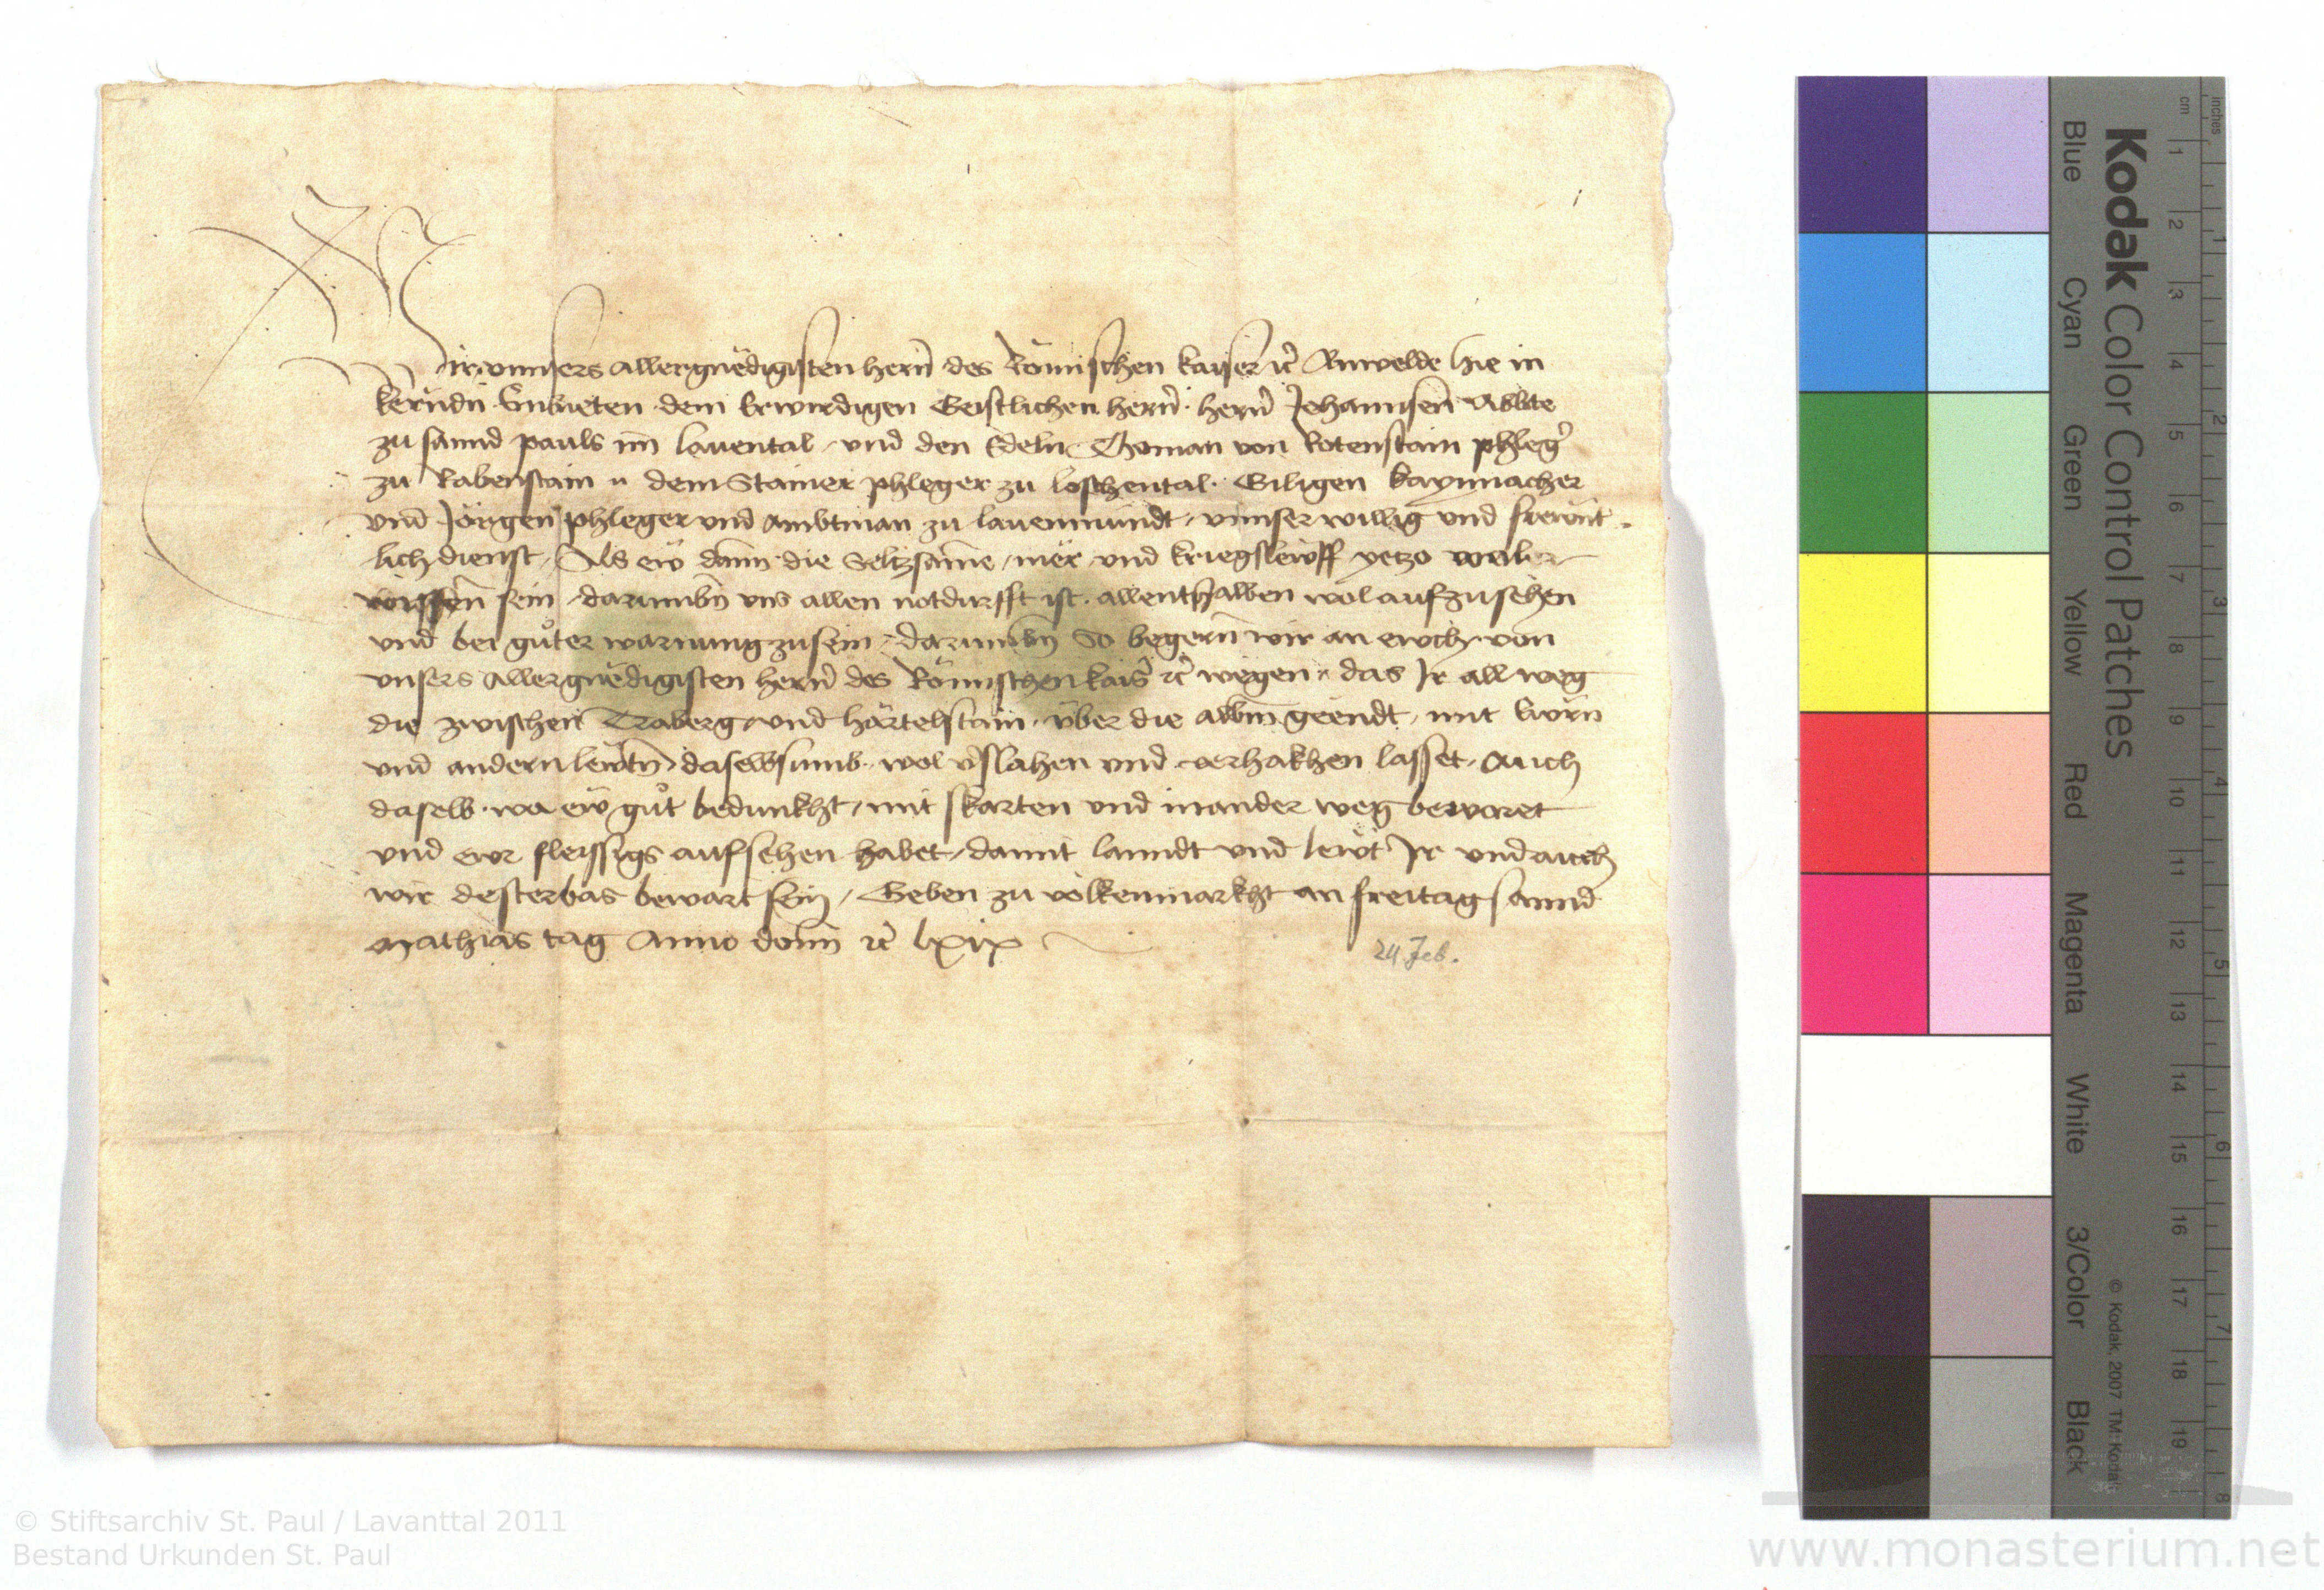 Wir unnsers allergnëdigisten herñ des Römischen kaiser ꝛc̃ Anwelde hie in
kërndñ Enbieten dem Erwirdigen Geistlichen herñ herñ Johannsen Abbte
zu sannd pauls im lauental und den Edeln Thoman von Rotenstain phleg̃
zu Rabenstain dem Stainer phleger zu loschental Giligen kaynnacher
und Jörgen phleger und ambtman zu lauenmündt unnser willig und frewnt
lich dienst Als ew dann die Seltzsame mër und kriegslewff yetzo
sein darumbñ uns allen notdurfft ist allenthalben wol aufzusehen
und bei gůter warnung zu sein darumbñ So begern wir an ewch von
unsers allergnëdigisten herñ des Römischen kais̃ ꝛc̃ wegen das Ir all weg
die zwischen Traberg und härtelstain über die albm geendt mit ewrn
und andern lewtñ daselbsumb wol v̾slahen und verhakhen lasset Auch
daselb wo ew gůt bedunkht mit skarten und in ander weg bewaret
und ewr fleissigs aufsehen habet damit lanndt und lewt Ir und auch
wir desterbas bewart sein Geben zu volkenmarkht an freitag sannd
Mathias tag Anno domi ꝛc̃ lxix
24 Feb.
Kodak Color Control Patches
Blue Cyan Green Yellow Red Magenta White 3/Color Black
© Kodak, 2007 TM: Kodak
inches 1 2 3 4 5 6 7 8
cm 1 2 3 4 5 6 7 8 9 10 11 12 13 14 15 16 17 18 19
© Stiftsarchiv St. Paul / Lavanttal 2011
Bestand Urkunden St. Paul
www.monasterium.net